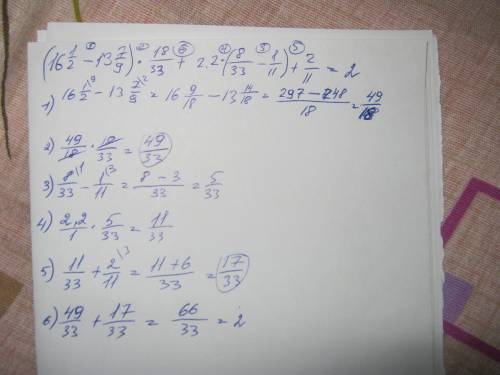 (16 1/2 ① − 13 7/9) ② · 18/33 ⑥ + 2.2 · ④ (8/33 ③ − 1/11) ⑤ + 2/11 = 2
1) 16 1/2 \9 − 13 7/9 \2 = 16 9/18 − 13 14/18 = (297 − 248)/18 = 49/18
2) 49/18 · 18/33 = 49/33
3) 8/33 \1 − 1/11 \3 = (8 − 3)/33 = 5/33
4) 2,2/1 · 5/33 = 11/33
5) 11/33 + 2/11 \3 = (11 + 6)/33 = 17/33
6) 49/33 + 17/33 = 66/33 = 2